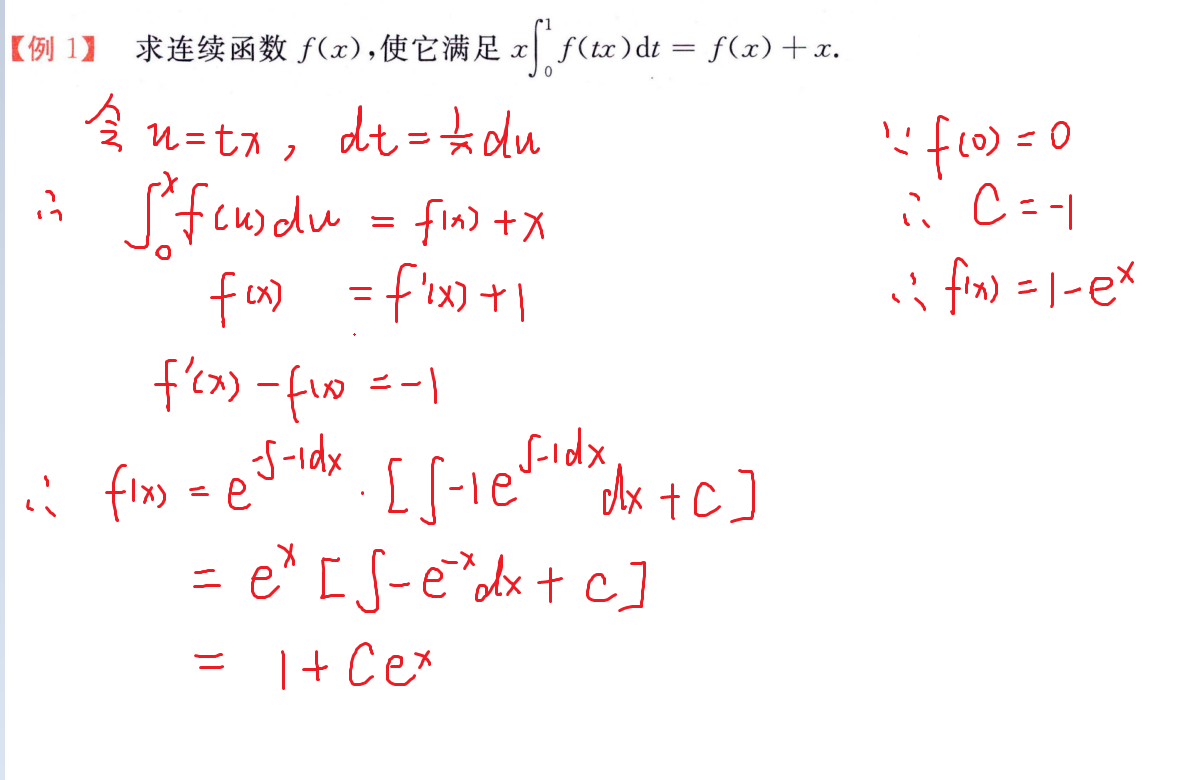 【例 1】 求连续函数 f(x),使它满足 x∫₀¹ f(tx)dt = f(x) + x.
令 u=tx , dt=1/x du
∴ ∫₀ˣ f(u)du = f(x)+x
f(x) = f'(x)+1
f'(x)-f(x) =-1
∴ f(x) = e^(-∫-1dx) · [∫-1e^(∫-1dx) dx +C]
= e^x [∫-e^(-x)dx + C]
= 1+Ce^x
∵ f(0)=0
∴ C=-1
∴ f(x)=1-e^x